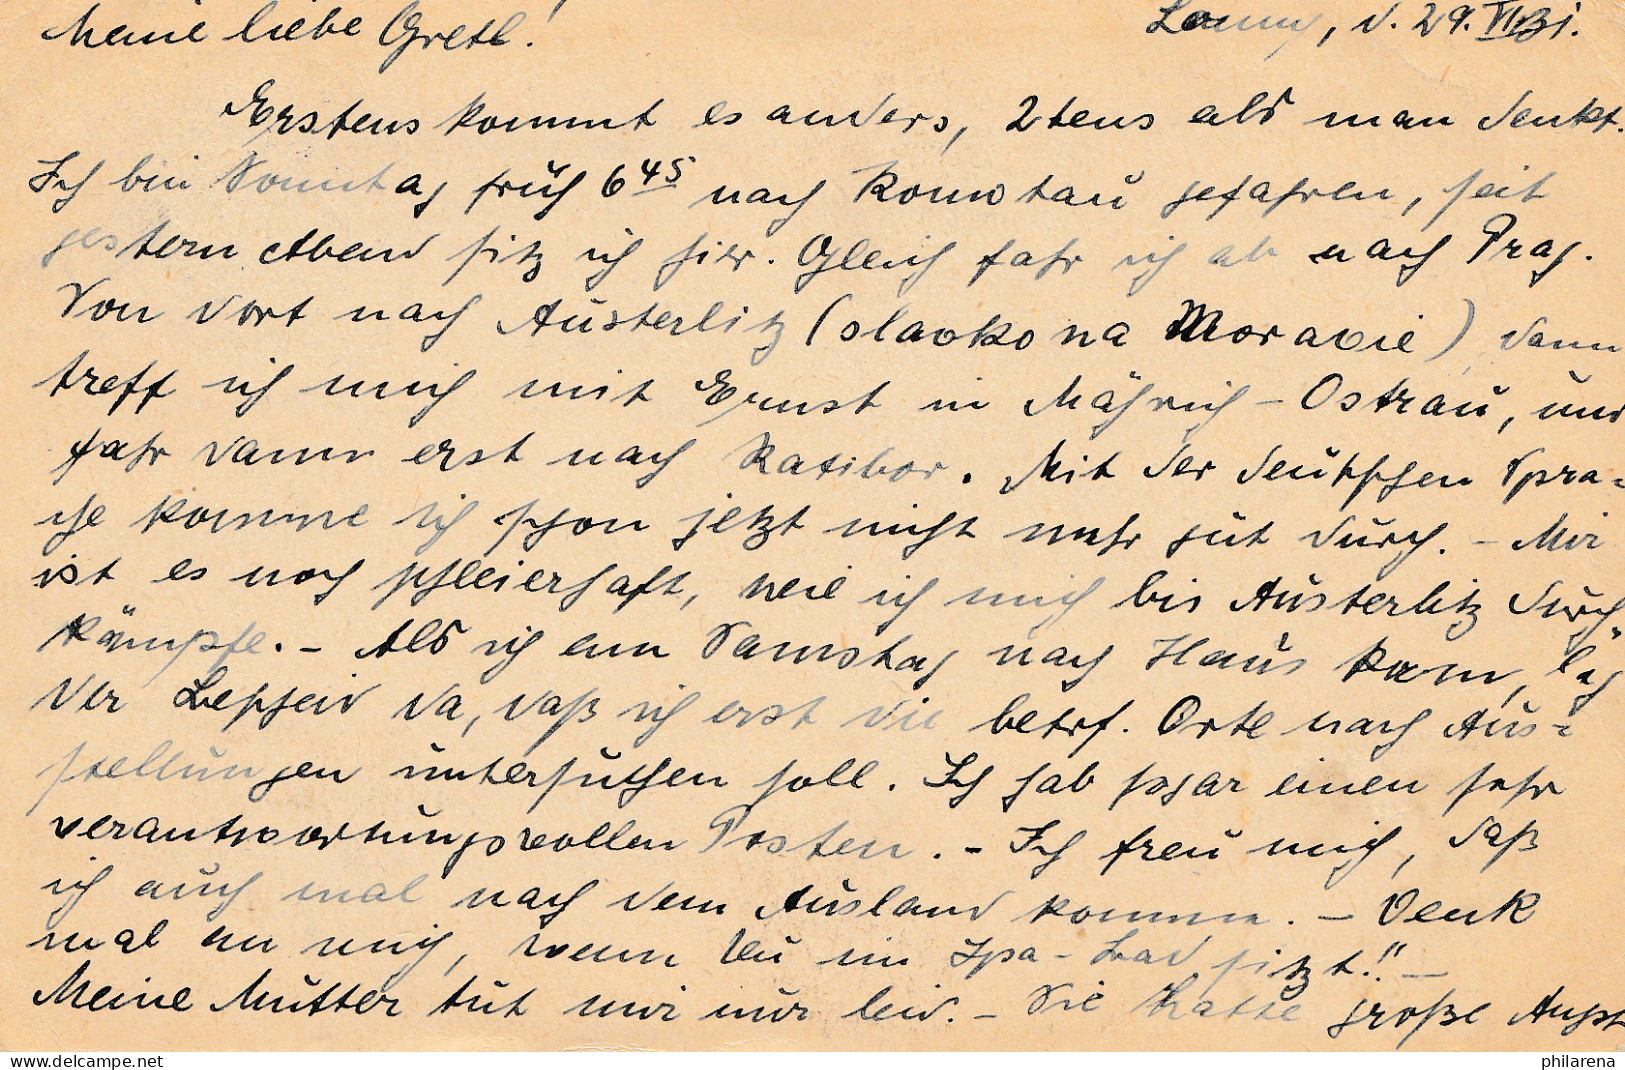 Meine liebe Gretl! Louny, d. 29. VI. 31.
Erstens kommt es anders, 2tens als man denkt.
Ich bin Sonntag früh 6 45 nach Komotau gefahren, seit
gestern Abend sitz ich hier. Gleich fahr ich ab nach Prag.
Von dort nach Austerlitz (slavko na Moravie) dann
treff ich mich mit Ernst in Mährisch-Ostrau, und
fahr dann erst nach Ratibor. Mit der deutschen Spra-
che komme ich schon jetzt nicht mehr gut durch. - Mir
ist es noch schleierhaft, wie ich mich bis Austerlitz durch-
kämpfe. - Als ich am Samstag nach Haus kam, lag
der Bescheid da, daß ich erst die betrf. Orte nach Aus-
stellungen untersuchen soll. Ich hab sogar einen sehr
verantwortungsvollen Posten. - Ich freu mich, daß
ich auch mal nach dem Ausland komme. - Denk
mal an mich, wenn Du im Isa-Bad sitzt!! -
Meine Mutter tut mir nur leid. - Sie hatte große Angst
philarena.com
www.delcampe.net